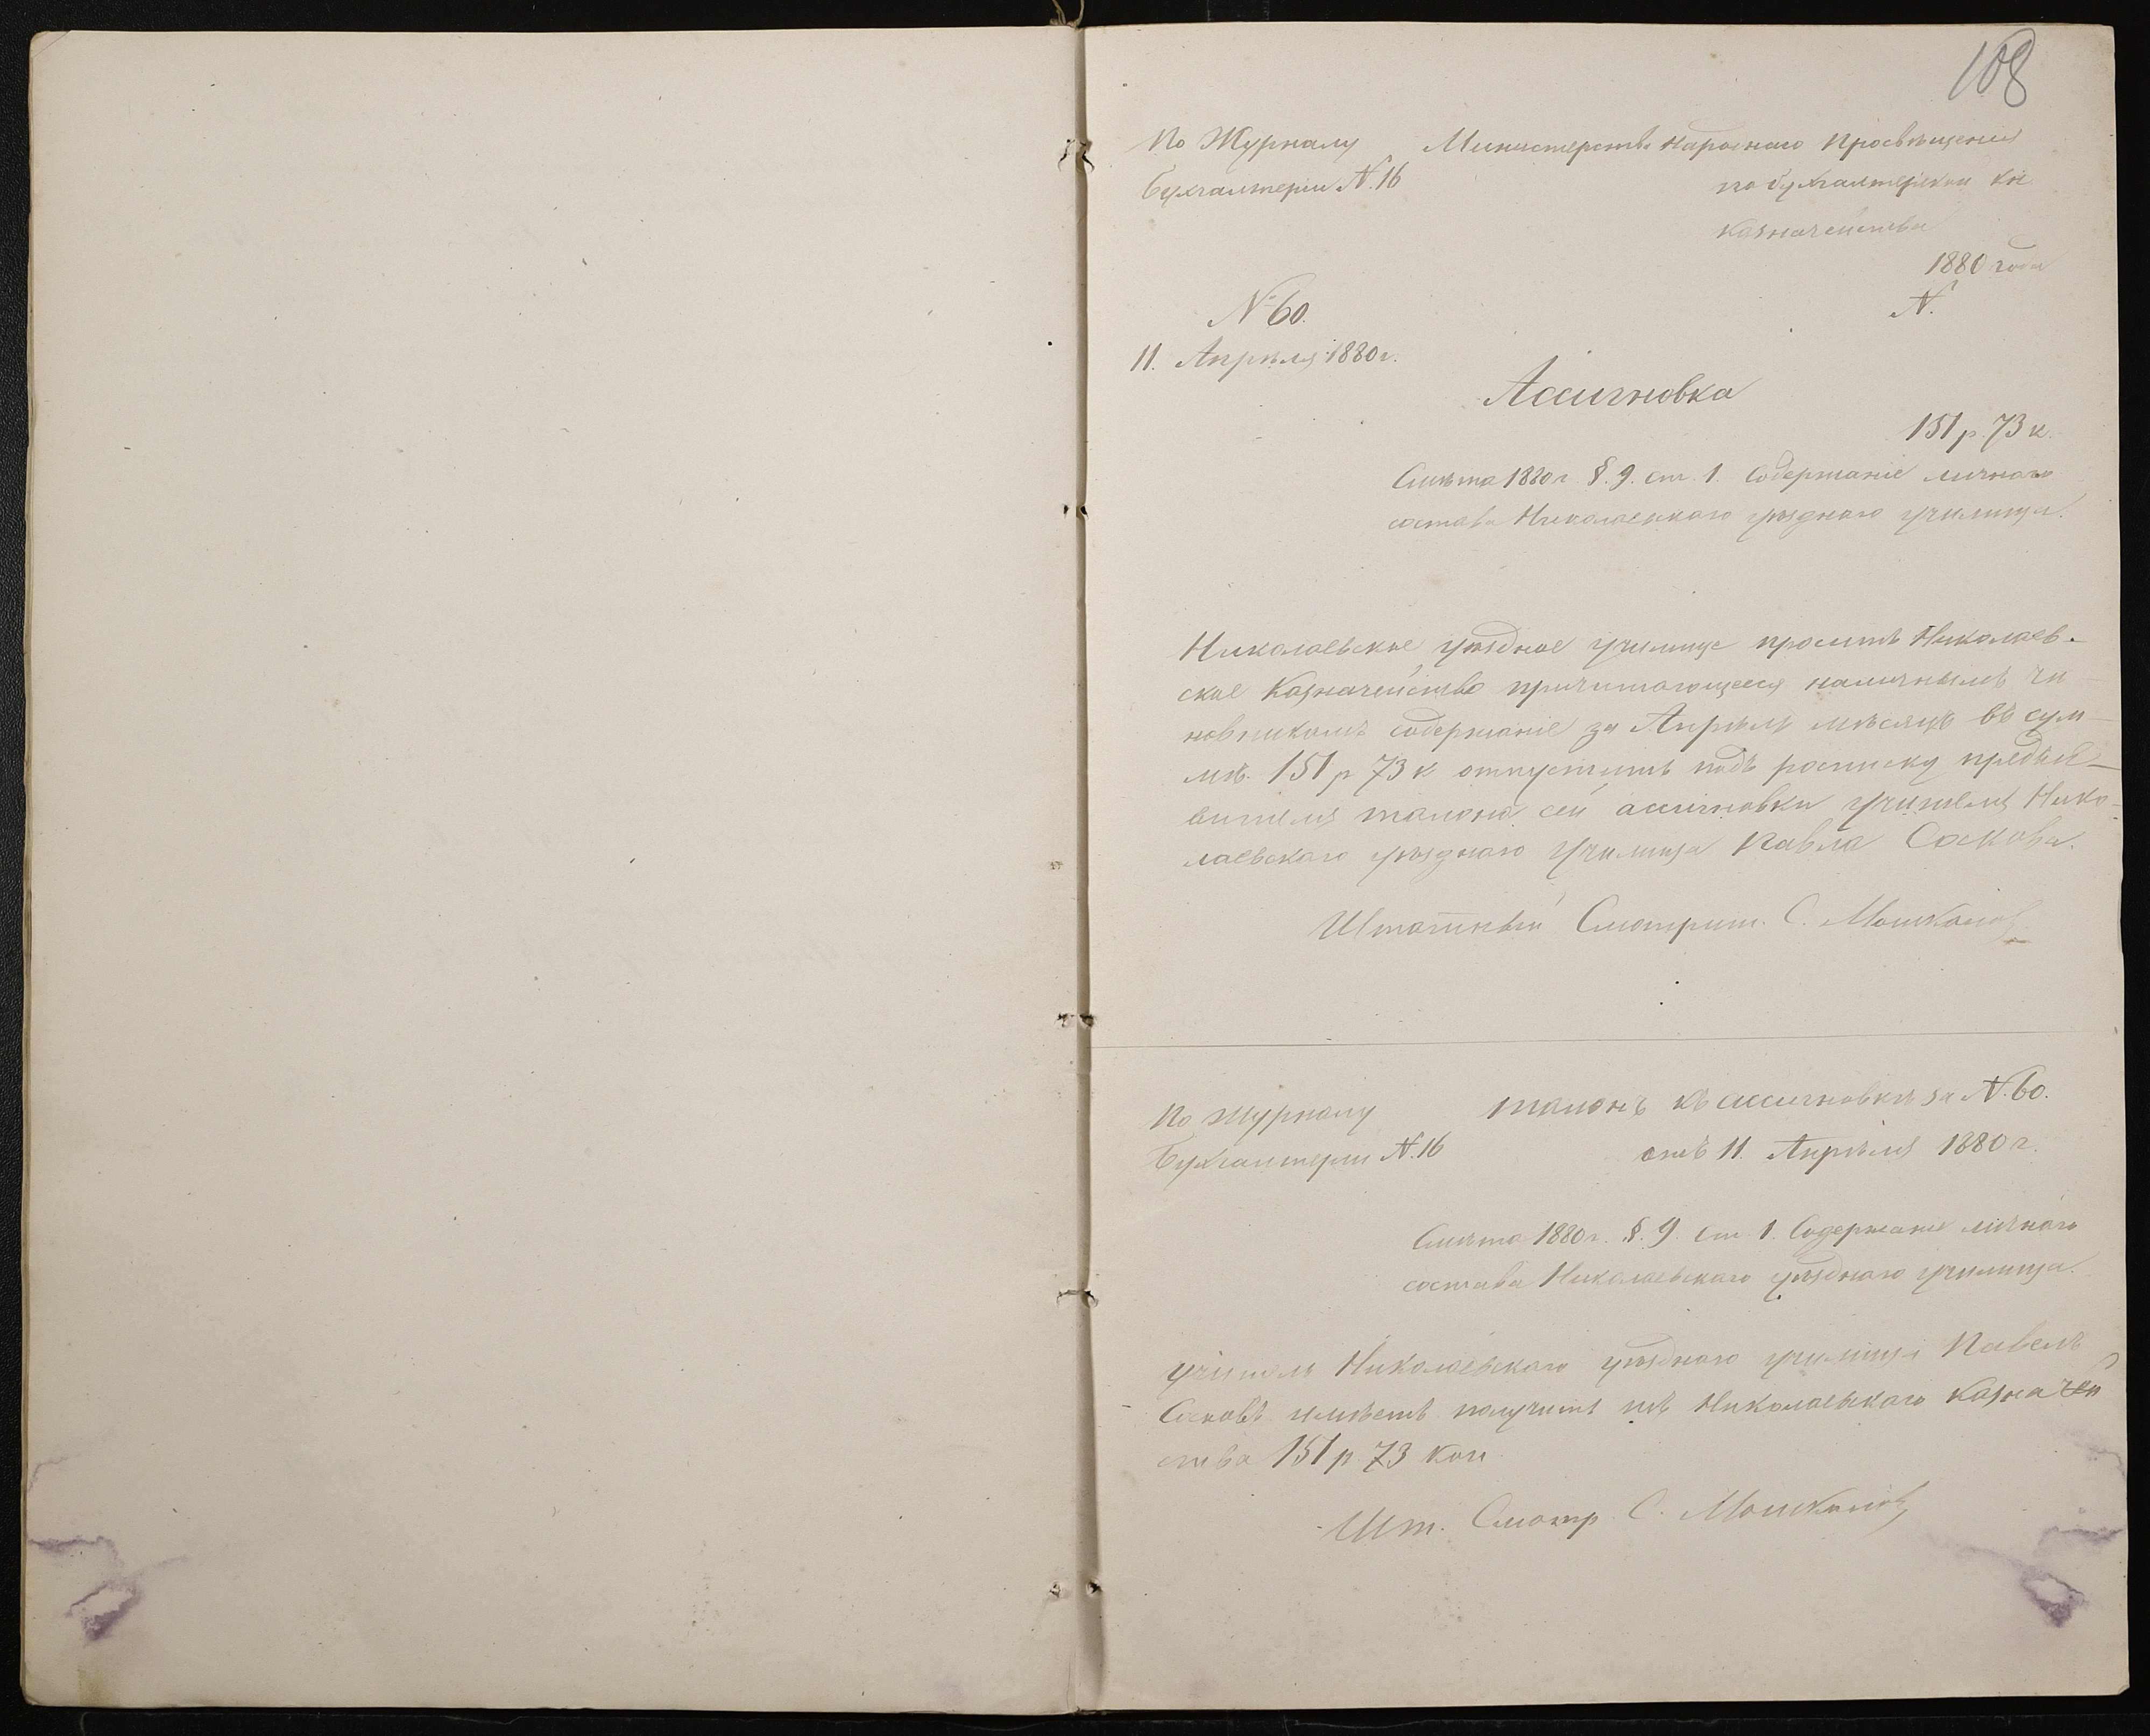 108
По Журналу
Бухгалтеріи №. 16
Министерства Народнаго Просвѣщенія
по бухгалтерской кн
казначейства
1880 года
№.
№ 60.
11. Апрѣля 1880 г.
Ассигновка
151 р. 73 к.
Смѣта 1880 г. §. 9. ст. 1. Содержаніе личнаго
состава Николаевскаго уѣзднаго училища.
Николаевское уѣздное училище проситъ Николаев-
ское Казначейство причитающееся наличнымъ чи-
новникамъ содержаніе за Апрѣль мѣсяцъ въ сум-
мѣ 151 р 73 к отпустить подъ росписку предъя-
вителя талона сей ассигновки учителя Нико-
лаевскаго уѣзднаго училища Павла Соскова.
Штатный Смотрит. С.
По журналу
Бухгалтеріи №. 16
Талонъ къ ассигновкѣ за №. 60.
отъ 11. Апрѣля 1880 г.
Смѣта 1880 г. §. 9. ст 1. Содержаніе личнаго
состава Николаевскаго уѣзднаго училища.
Учитель Николаевскаго уѣзднаго училища Павелъ
Сосковъ имѣетъ получить изъ Николаевскаго Казначей
ства 151 р. 73 коп.
Шт. Смотр. С.